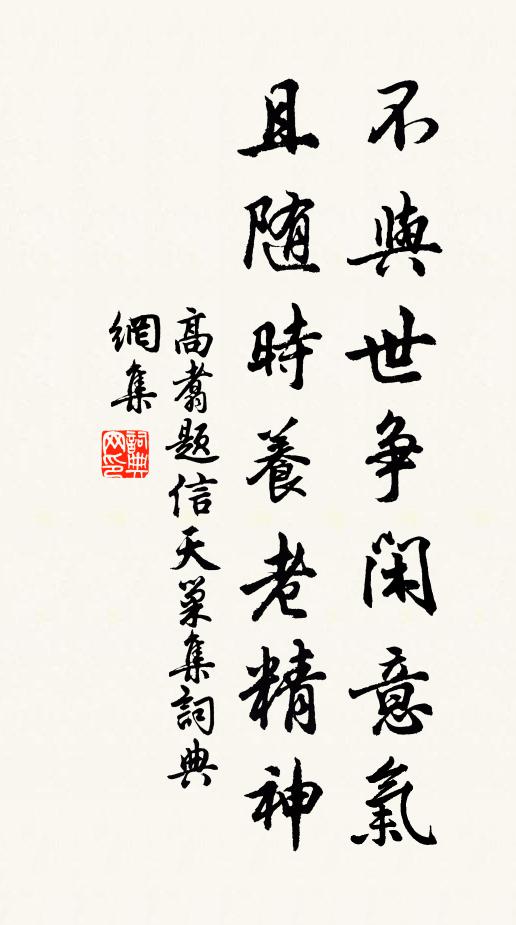 不與世争閑意氣
且随時養老精神
高翥題信天巢集詞典
網集
詞典
网印